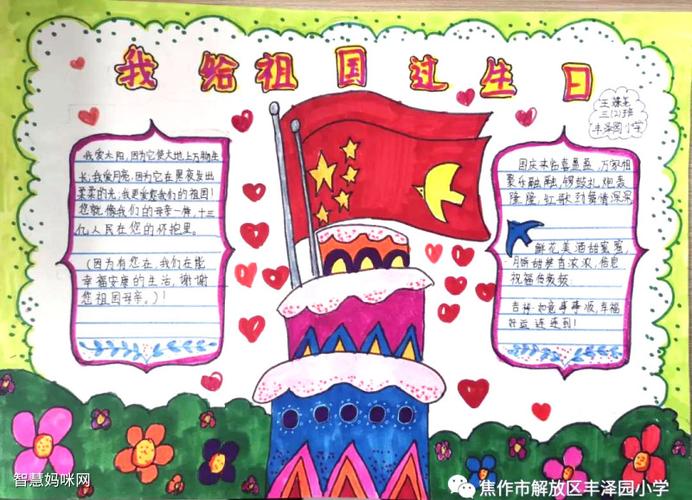 我给祖国过生日
三(2)班
丰泽园小学
我爱太阳,因为它使大地上万物生
长,我爱月亮,因为它在黑夜发出
柔柔的光,我更爱您我们的祖国!
您就像我们的母亲一样,十三
亿人民在您的怀抱里。
(因为有您在,我们在能
幸福安康的生活,谢谢
您祖国母亲。)!
国庆来临喜盈盈,万家相
聚乐融融,锣鼓礼炮轰
隆隆,红歌到
鲜花美酒甜蜜蜜
月饼甜 浓浓,信息
祝福
吉祥如意事事顺,幸福
好运连连到!
智慧妈咪网
焦作市解放区丰泽园小学